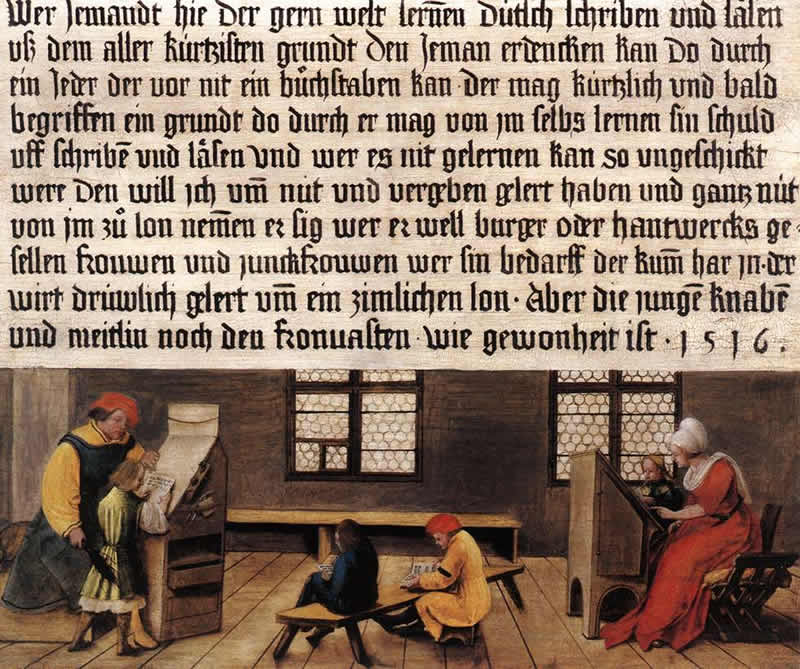 Wer jemandt hie der gern welt lernen dütsch schriben und läsen
uß dem aller kürtzisten grundt den jeman erdencken kan do durch
ein jeder der vor nit ein bůchstaben kan · der mag kürtzlich und bald
begriffen ein grundt do durch er mag von jm selbs lernen sin schuld
uff schribē und läsen und wer es nit gelernen kan so ungeschickt
were den will ich um̄ nüt und vergeben gelert haben und gantz nüt
von jm zů lon nem̄en er sig wer er well burger oder hantwercks ge-
sellen frouwen und junckfrouwen wer sin bedarff der kum̄ har jn · der
wirt drüwlich gelert um̄ ein zimlichen lon · Aber die jungē knabē
und meitlin noch den fronuasten · wie gewonheit ist · 1516 ·